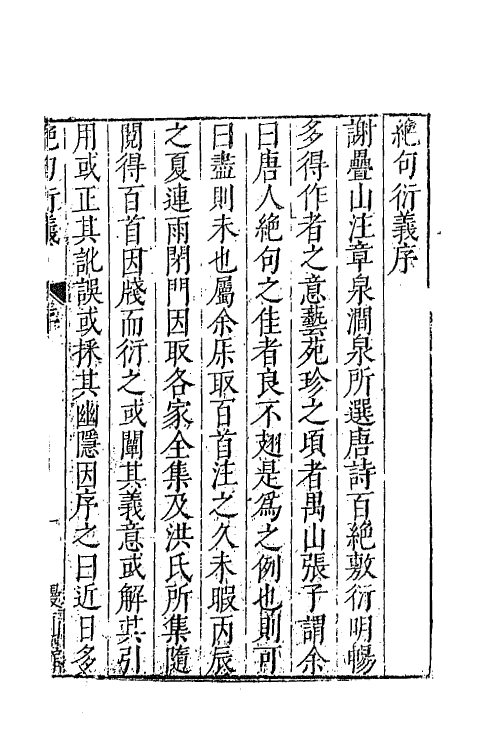 絶句衍義序
謝疊山注章泉澗泉所選唐詩百絶敷衍明暢
多得作者之意藝苑珍之頃者禺山張子謂余
曰唐人絶句之佳者良不翅是爲之例也則可
曰盡則未也屬余乐取百首注之久未暇丙辰
之夏連雨閉門因取各家全集及洪氏所集隨
閱得百首因牋而衍之或闡其義意或解其引
用或正其訛誤或採其幽隱因序之曰近日多
絶句衍義